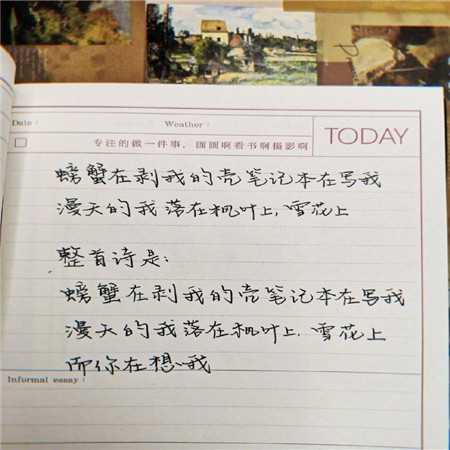 Date :
Weather :
专注的做一件事，画画啊看书啊摄影啊
TODAY
螃蟹在剥我的壳笔记本在写我
漫天的我落在枫叶上，雪花上
整首诗是：
螃蟹在剥我的壳笔记本在写我
漫天的我落在枫叶上.雪花上
而你在想我
Informal essay :